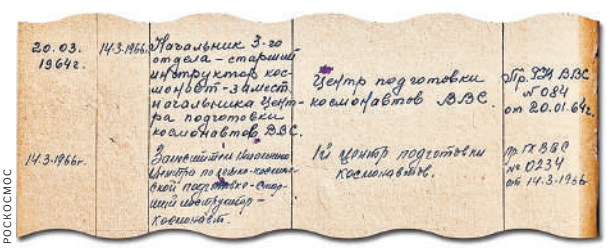 20.03.
1964г.
14.3.1966г.
Начальник 3-го
отдела – старший
инструктор кос-
монавт – замест.
начальника Цент-
ра подготовки
космонавтов ВВС.
Центр подготовки
космонавтов ВВС.
Пр. ГК ВВС
N 084
от 20.01.64г.
14.3.1966г.
Заместитель Начальника
Центра по
ской подготовке – стар-
ший инструктор –
космонавт.
1й Центр подготовки
космонавтов.
Пр. ГК ВВС
№ 0234
от 14.3.1966
РОСКОСМОС